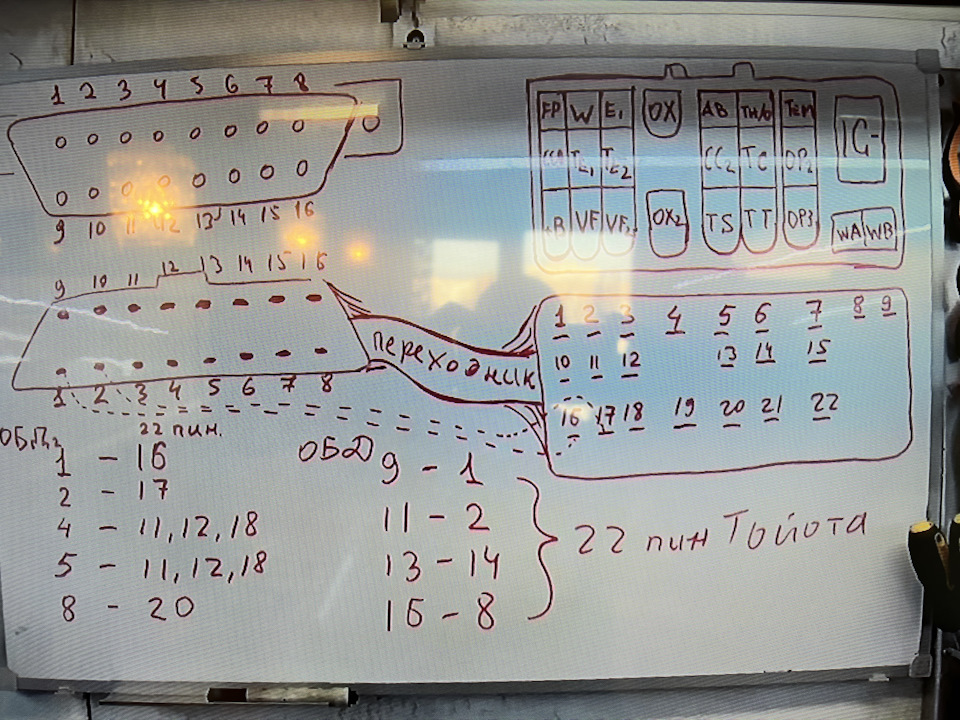 1 2 3 4 5 6 7 8
9 10 11 12 13 14 15 16
FP W E1 OX AB TH/O TEM IG-
CCO TE1 TE2 CC2 TC OP2
+B VF VF2 OX2 TS TT OP3 WA WB
9 10 11 12 13 14 15 16
1 2 3 4 5 6 7 8
переходник
1 2 3 4 5 6 7 8 9
10 11 12 13 14 15
16 17 18 19 20 21 22
ОБД2 22 пин.
1 - 16
2 - 17
4 - 11, 12, 18
5 - 11, 12, 18
8 - 20
ОБД
9 - 1
11 - 2
13 - 14
16 - 8
22 пин Тойота